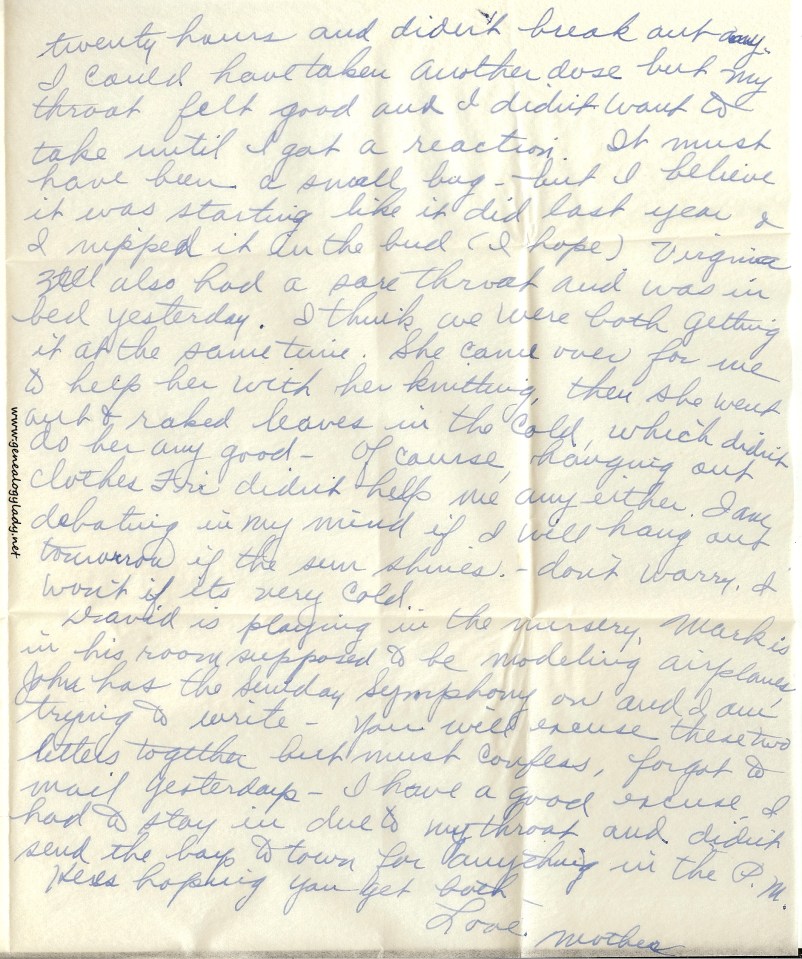 twenty hours and didn't break out any.
I could have taken another dose but my
throat felt good and I didn't want to
take until I got a reaction. It must
have been a small bug - but I believe
it was starting like it did last year &
I nipped it in the bud (I hope) Virginia
also had a sore throat and was in
bed yesterday. I think we were both getting
it at the same time. She came over for me
to help her with her knitting, then she went
out & raked leaves in the cold, which didn't
do her any good - Of course, hanging out
clothes Fri didn't help me any either. I am
debating in my mind if I will hang out
tomorrow if the sun shines. - don't worry. I
won't if its very cold.
David is playing in the nursery, Mark is
in his room supposed to be modeling airplanes,
John has the Sunday Symphony on and I am
trying to write - You will excuse these two
letters together but must confess, forgot to
mail yesterdays - I have a good excuse, I
had to stay in due to my throat and didn't
send the boys to town for anything in the P.M.
Heres hoping you get both
Love.
Mother
www.genealogylady.net